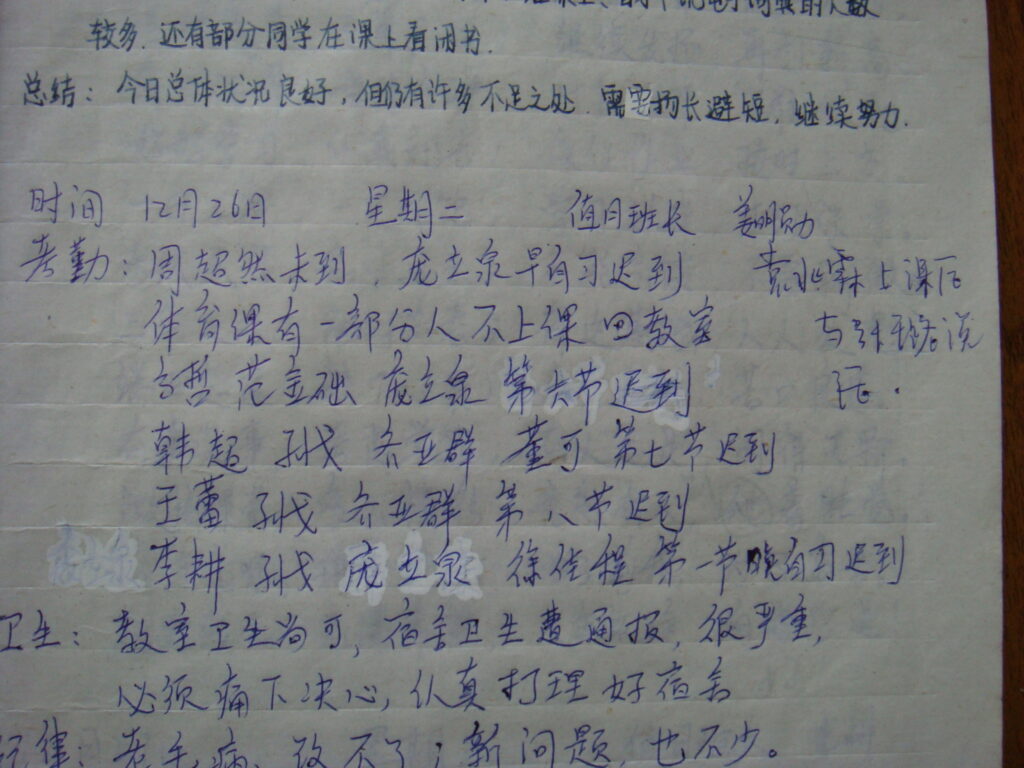 较多.还有部分同学在课上看闲书.
总结：今日总体状况良好，但仍有许多不足之处.需要扬长避短，继续努力.
时间 12月26日 星期二 值日班长 姜明勋
考勤：周超然未到，庞立泉早自习迟到
体育课有一部分人不上课回教室
方哲 范金础 庞立泉 第六节迟到
韩超 孙戈 乔亚群 董可 第七节迟到
王蕾 孙戈 乔亚群 第八节迟到
李耕 孙戈 庞立泉 徐佳程 第一节晚自习迟到
袁 霖上课后
与 说
话.
卫生：教室卫生尚可，宿舍卫生遭通报，很严重，
必须痛下决心，认真打理好宿舍
纪律：老毛病，改不了；新问题，也不少。